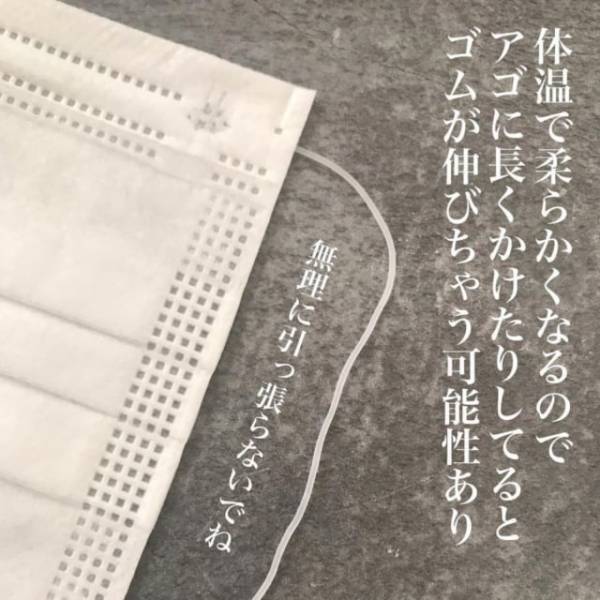 体温で柔らかくなるので
アゴに長くかけたりしてると
ゴムが伸びちゃう可能性あり
無理に引っ張らないでね